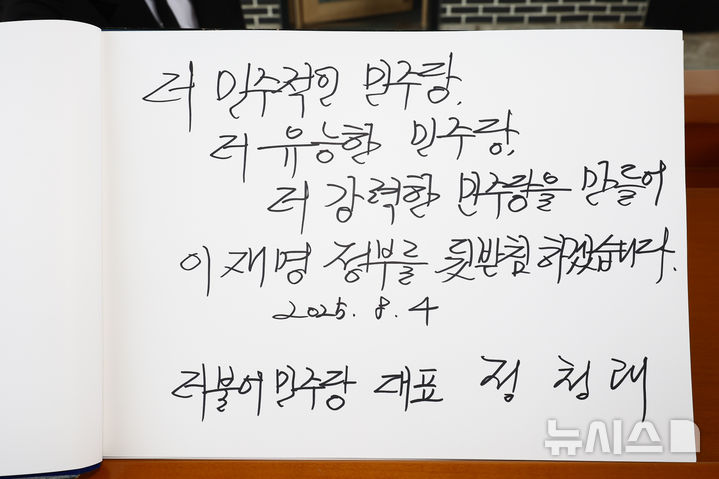 더 민주적인 민주당,
더 유능한 민주당,
더 강력한 민주당을 만들어
이재명 정부를 뒷받침 하겠습니다.
2025. 8. 4
더불어민주당 대표 정청래
뉴시스